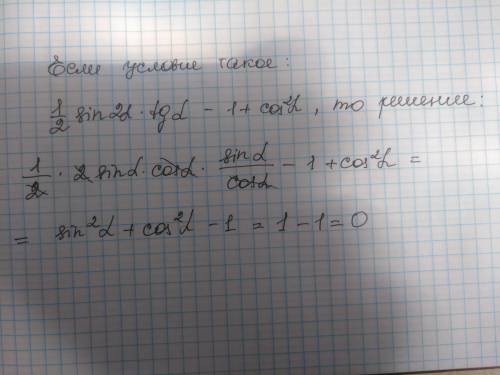 Если условие такое:
1/2 sin2α · tgα - 1 + cos²α, то решение:
1/2 · 2 sinα · cosα · sinα/cosα - 1 + cos²α =
= sin²α + cos²α - 1 = 1 - 1 = 0